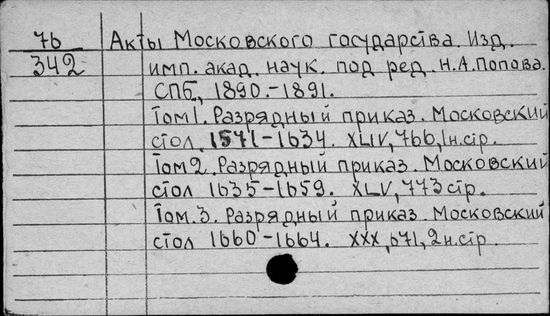 76 Акты Московского государства. Изд.
342 имп. акад. наук. под ред. Н.А.Попова.
СПб., 1890.-1891.
Том1. Разрядный приказ. Московский
стол. 1571-1634. XLIV, 766, 1н.стр.
Том2. Разрядный приказ. Московский
стол 1635-1659. XLV, 773 стр.
Том.3. Разрядный приказ. Московский
стол 1660-1664. XXX, 671, 2н.стр.